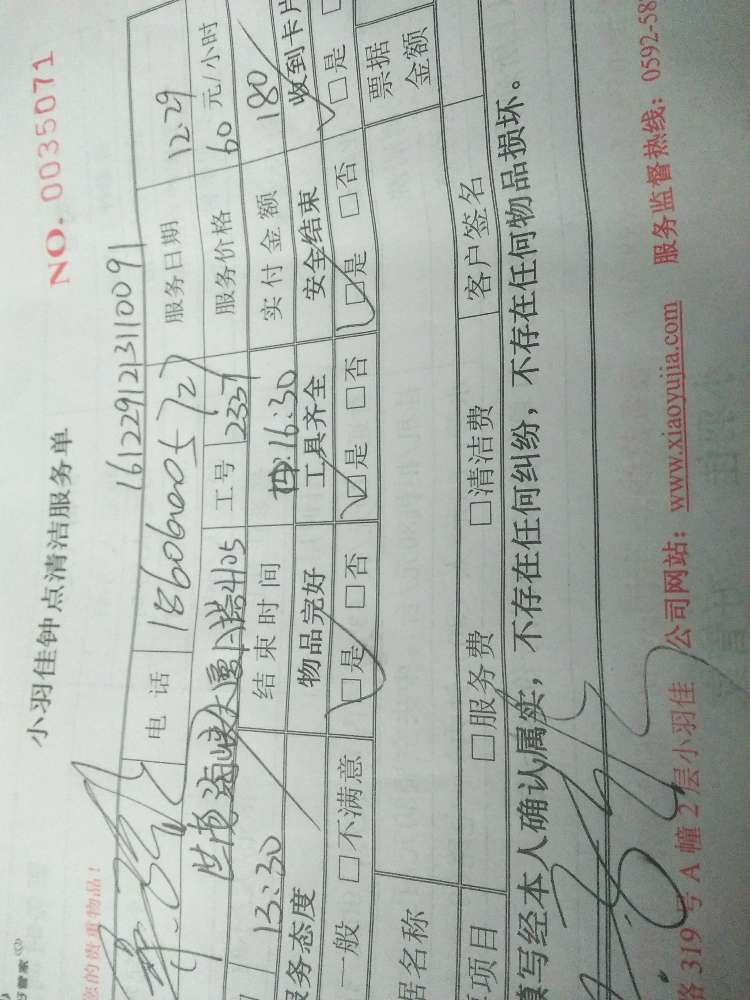 好管家
小羽佳钟点清洁服务单
NO. 0035071
您的贵重物品!
1612291213110091
电话 18606005727 服务日期 12.29
海峡大厦A塔4105 工号 2337 服务价格 60元/小时
13:30 结束时间 16:30 实付金额 180
务态度 物品完好 工具齐全 安全结束 收到卡片
一般 □不满意 □是 □否 □是 □否 □是 □否 □是
据名称 票据金额
项目 □服务费 □清洁费 客户签名
填写经本人确认属实，不存在任何纠纷，不存在任何物品损坏。
路319号A幢2层小羽佳 公司网站：www.xiaoyujia.com 服务监督热线：0592-58